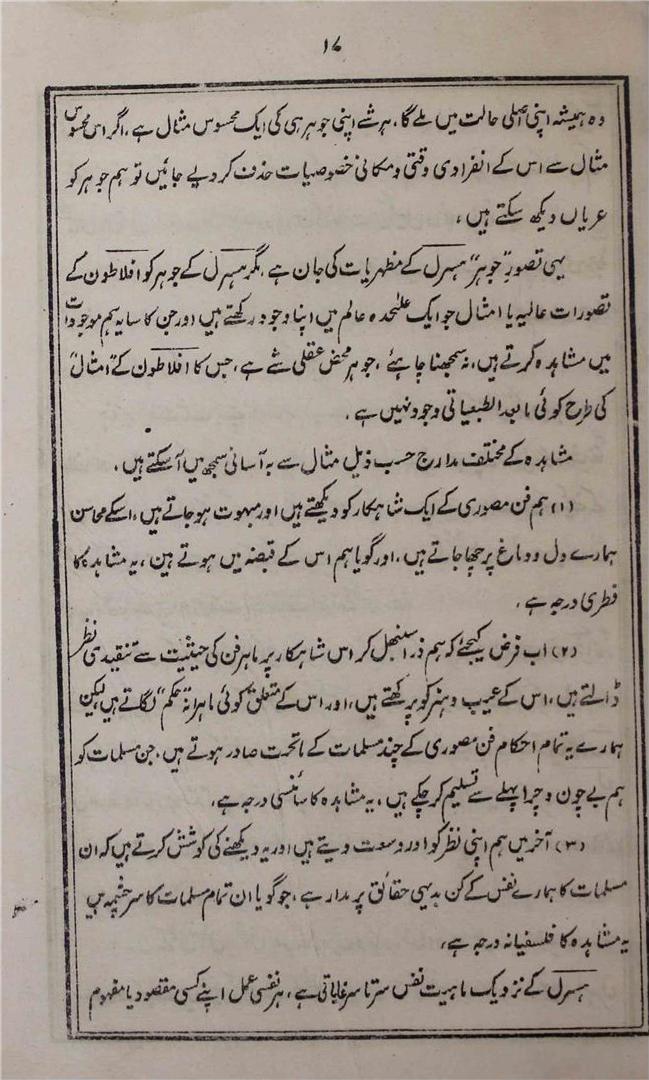 ۱۷
وہ ہمیشہ اپنی اصلی حالت میں ملے گا، ہر شے اپنی جوہر ہی کی ایک محسوس مثال ہے، اگر اس محسوس
مثال سے اس کے انفرادی وقتی و مکانی خصوصیات حذف کر دیے جائیں تو ہم جوہر کو
عریاں دیکھ سکتے ہیں،
یہی تصورِ "جوہر" ہسرل کے مظہریات کی جان ہے، مگر ہسرل کے جوہر کو افلاطون کے
تصورات عالیہ یا امثال جو ایک علٰحدہ عالم میں اپنا وجود رکھتے ہیں اور جن کا سایہ ہم موجودات
میں مشاہدہ کرتے ہیں، نہ سمجھنا چاہئے، جوہر محض عقلی شے ہے، جس کا افلاطون کے "امثال"
کی طرح کوئی ما بعد الطبعیاتی وجود نہیں ہے،
مشاہدہ کے مختلف مدارج حسب ذیل مثال سے بہ آسانی سمجھ میں آ سکتے ہیں،
(۱) ہم فن مصوری کے ایک شاہکار کو دیکھتے ہیں اور مبہوت ہو جاتے ہیں، اسکے محاسن
ہمارے دل و دماغ پر چھا جاتے ہیں، اور گویا ہم اس کے قبضہ میں ہوتے ہین، یہ مشاہدہ کا
فطری درجہ ہے،
(۲) اب فرض کیجئے کہ ہم ذرا سنبھل کر اس شاہکار پر ماہر فن کی حیثیت سے تنقیدی نظر
ڈالتے ہیں، اس کے عیب و ہنر کو پرکھتے ہیں، اور اس کے متعلق کوئی ماہرانہ "حکم" لگاتے ہیں لیکن
ہمارے یہ تمام احکام فن مصوری کے چند مسلمات کے ماتحت صادر ہوتے ہیں، جن مسلمات کو
ہم بے چون و چرا پہلے سے تسلیم کر چکے ہیں، یہ مشاہدہ کا سائنسی درجہ ہے،
(۳) آخر میں ہم اپنی نظر کو اور وسعت دیتے ہیں اور یہ دیکھنے کی کوشش کرتے ہیں کہ ان
مسلمات کا ہمارے نفس کے کن بدیہی حقائق پر مدار ہے، جو گویا ان تمام مسلمات کا سر چشمہ ہیں
یہ مشاہدہ کا فلسفیانہ درجہ ہے،
ہسرل کے نزدیک ماہیت نفس سرتا سر غایاتی ہے، ہر نفسی عمل اپنے کسی مقصود یا مفہوم